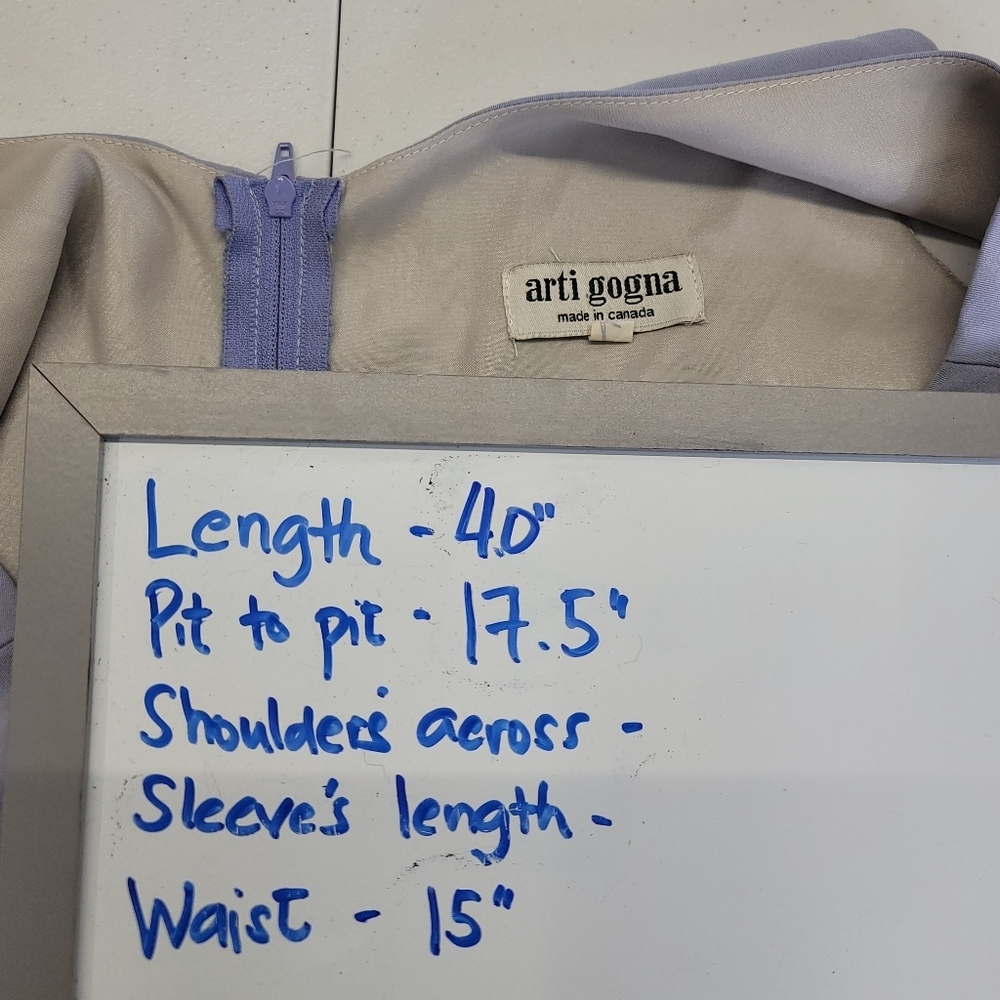 arti gogna
made in canada
Length - 40"
Pit to pit - 17.5"
Shoulder's across -
Sleeve's length -
Waist - 15"